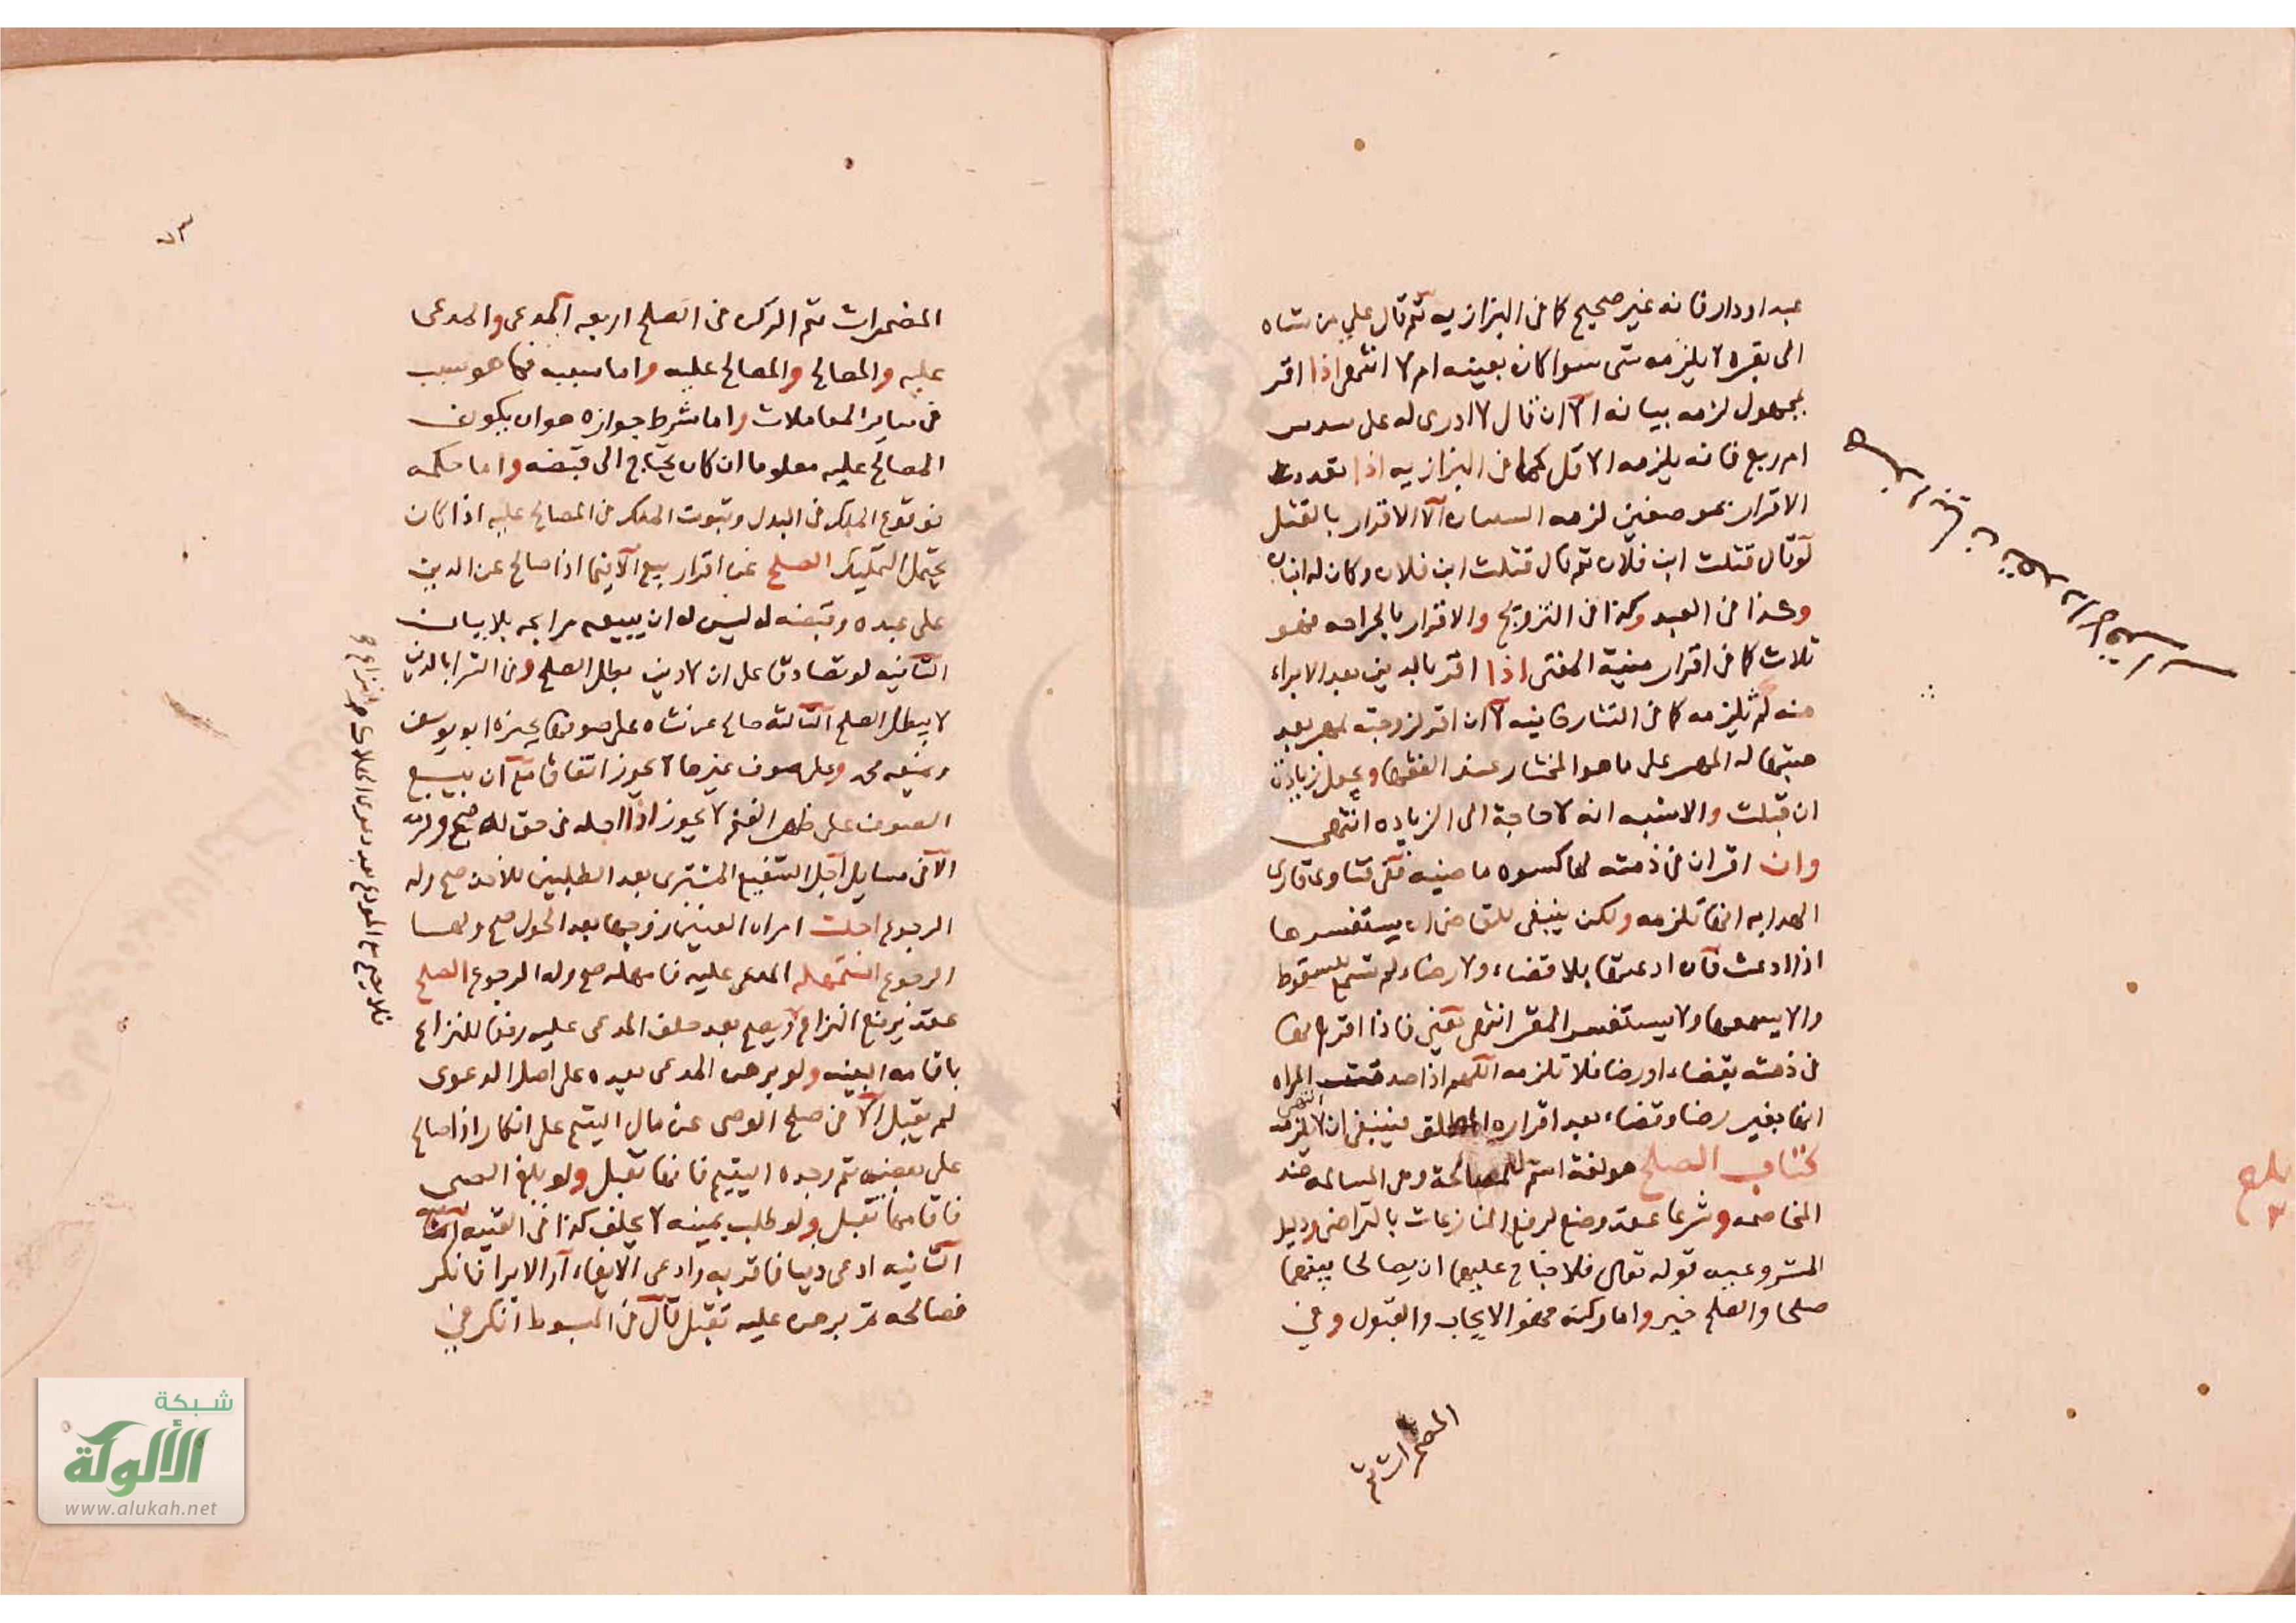 عبد او دار فانه غير صحيح كما فى البزازيه ثم قال علي من شاه
الى بقره لا يلزمه شى سوا كان بعينه ام لا انتهى اذا اقر
بمجهول لزمه بيانه الا ان قال لا ادرى له على سدس
ام ربع فانه يلزمه الاقل كما فى البزازيه اذا تعددت
الاقرار بموضعين لزمه الشيئان الا الاقرار بالقتل
لو قال قتلت ابن فلان ثم قال قتلت ابن فلان وكان له ابنان
وكذا فى العبد وكذا فى التزويج والاقرار بالجراحه فهو
ثلاث كما فى اقرار منية المفتى اذا اقر بالدين بعد الابراء
منه لم يلزمه كما فى التتارخانيه الا ان اقر لزوجته بمهر بعد
هبتها له المهر على ما هو المختار عند الفقيه ويجعل زيادة
ان قبلت والاشبه انه لا حاجة الى الزياده انتهى
وان اقر ان فى ذمته لها كسوه ماضيه ففى فتاوى قارى
الهدايه انها تلزمه ولكن ينبغى للقاضى ان يستفسرها
اذا ادعت فان ادعتها بلا قضاء ولا رضاء لم تسمع للسقوط
والا يسمعها ولا يستفسر المقر انتهى يعنى فاذا اقر بانها
فى ذمته بقضاء او رضا فلا تلزمه اللهم اذا صدقته المراه
انها بغير رضا وقضاء بعد اقراره المطلق فينبغى ان لا تلزمه انتهى
كتاب الصلح هو لغة اسم للمصالحة وهى المسالمه ضد
المخاصمه وشرعا عقد وضع لرفع المنازعات بالتراضى ودليل
المشروعيه قوله تعالى فلا جناح عليهما ان يصالحا بينهما
صلحا والصلح خير واما ركنه فهو الايجاب والقبول وفى
المضمرات ثم
بلغ
المضمرات ثم الركن فى الصلح اربعه المدعى والمدعى
عليه والمصالح والمصالح عليه واما سببه فما هو سبب
فى ساير المعاملات واما شرط جوازه هو ان يكون
المصالح عليه معلوما ان كان يحتاج الى قبضه واما حكمه
فوقوع الملك فى البدل وثبوت الملك فى المصالح عليه اذا كان
يحتمل التمليك الصلح عن اقرار بيع الا فيما اذا صالح عن الدين
على عبده وقبضه له ليس له ان يبيعه مرابحه بلا بيان
الثانيه لو تصادقا على ان لا دين بطل الصلح وفى الشرا بالدين
لا يبطل الصلح الثالثه صالح عن شاه على صوفها يجيزه ابو يوسف
ويمنعه محمد وعلى صوف غيرها لا يجوز اتفاقا مع ان بيع
الصوف على ظهر الغنم لا يجوز اذا اجله فى حق له صح ولزم
الا فى مسايل اجل الشفيع المشترى بعد الطلبين للاخذ صح وله
الرجوع اجلت امراه العنين زوجها بعد الحول صح ولها
الرجوع استمهله المدعى عليه فامهله صح وله الرجوع الصلح
عقد يرفع النزاع ولا يصح بعد حلف المدعى عليه رفعا للنزاع
باقامه البينه ولو برهن المدعى بعده على اصل الدعوى
لم يقبل الا فى صلح الوصى عن مال اليتيم على انكار اذا صالح
على بعضه ثم وجده اليتيم فانها تقبل ولو بلغ الصبى
فاقامها تقبل ولو طلب يمينه لا يحلف كذا فى القنيه
الثانيه ادعى دينا فاقر به وادعى الايفاء او الابرا فانكر
فصالحه ثم برهن عليه تقبل قال فى المبسوط انكر فى
فلا يصح مع المودع بعد دعوى الهلاك
شبكة
الألوكة
www.alukah.net